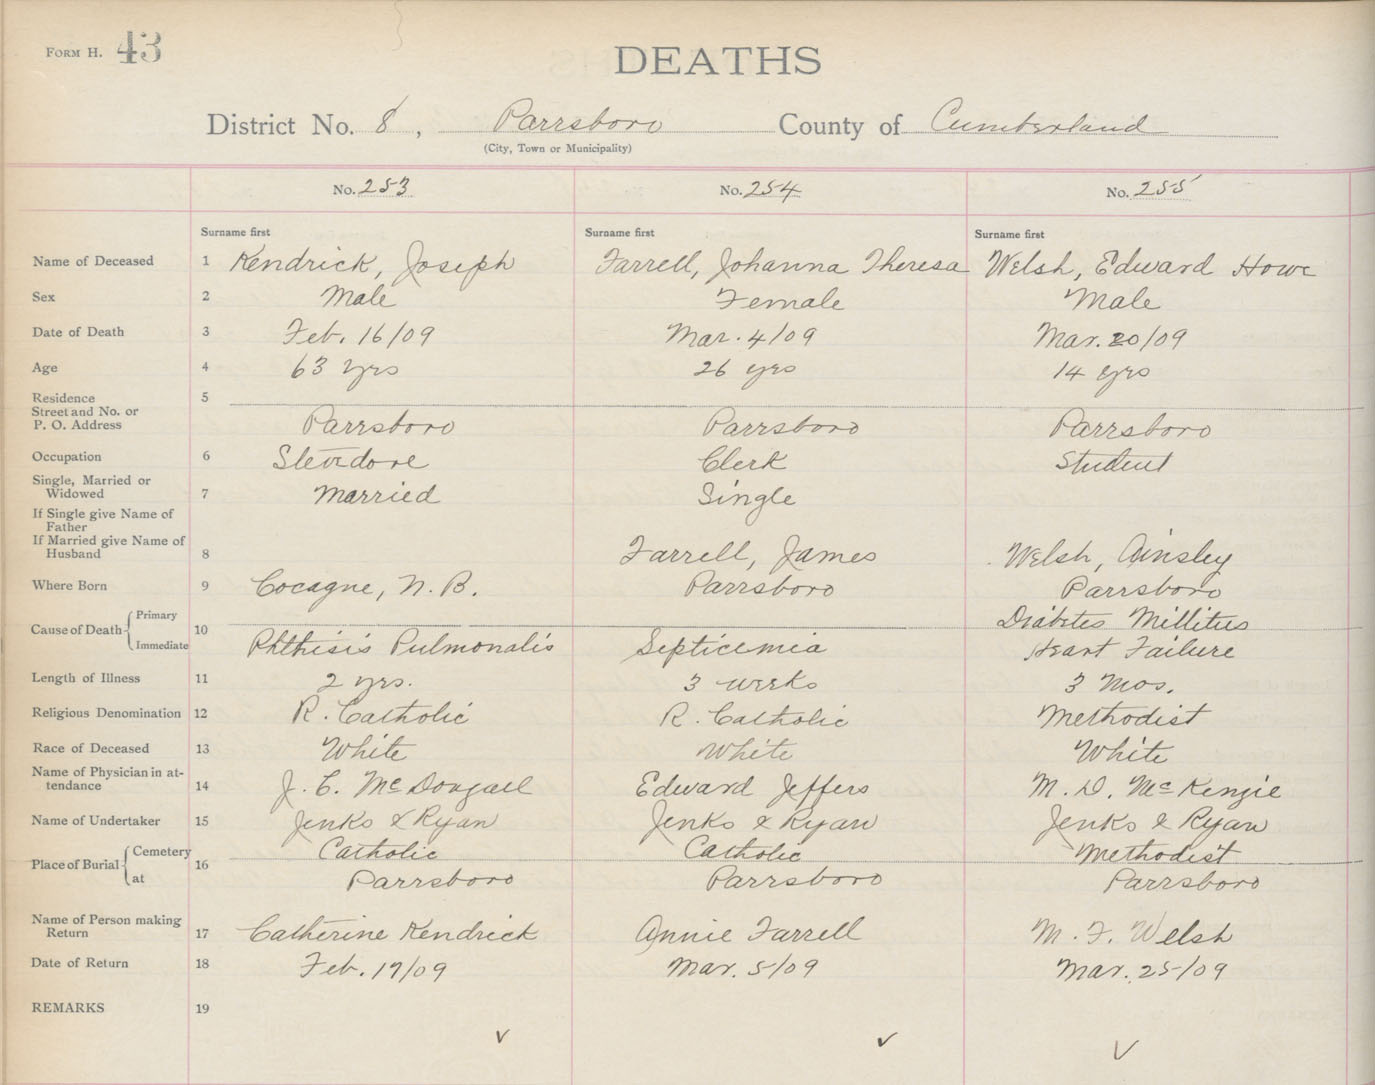 FORM H. 43
DEATHS
District No. 8, Parrsboro County of Cumberland
(City, Town or Municipality)
No. 253 No. 254 No. 255
Surname first Surname first Surname first
Name of Deceased 1 Kendrick, Joseph Farrell, Johanna Theresa Welsh, Edward Howe
Sex 2 Male Female Male
Date of Death 3 Feb. 16/09 Mar. 4/09 Mar. 20/09
Age 4 63 yrs 26 yrs 14 yrs
Residence 5
Street and No. or
P. O. Address Parrsboro Parrsboro Parrsboro
Occupation 6 Stevedore Clerk Student
Single, Married or
Widowed 7 Married Single
If Single give Name of
Father
If Married give Name of
Husband 8 Farrell, James Welsh, Ainsley
Where Born 9 Cocagne, N. B. Parrsboro Parrsboro
Cause of Death 10 Primary Diabetes Millitus
Immediate Phthisis Pulmonalis Septicemia Heart Failure
Length of Illness 11 2 yrs. 3 weeks 3 mos.
Religious Denomination 12 R. Catholic R. Catholic Methodist
Race of Deceased 13 White White White
Name of Physician in at-
tendance 14 J. C. McDougall Edward Jeffers M. D. McKenzie
Name of Undertaker 15 Jenks & Ryan Jenks & Ryan Jenks & Ryan
Place of Burial 16 Cemetery Catholic Catholic Methodist
at Parrsboro Parrsboro Parrsboro
Name of Person making
Return 17 Catherine Kendrick Annie Farrell M. F. Welsh
Date of Return 18 Feb. 17/09 Mar. 5/09 Mar. 25/09
REMARKS 19